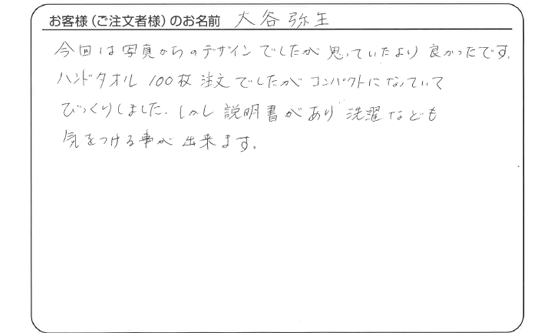 お客様（ご注文者様）のお名前 大谷弥生
今回は写真からのデザインでしたが思っていたより良かったです。
ハンドタオル 100枚 注文でしたがコンパクトになっていて
びっくりしました。しかし説明書があり洗濯なども
気をつける事が出来ます。